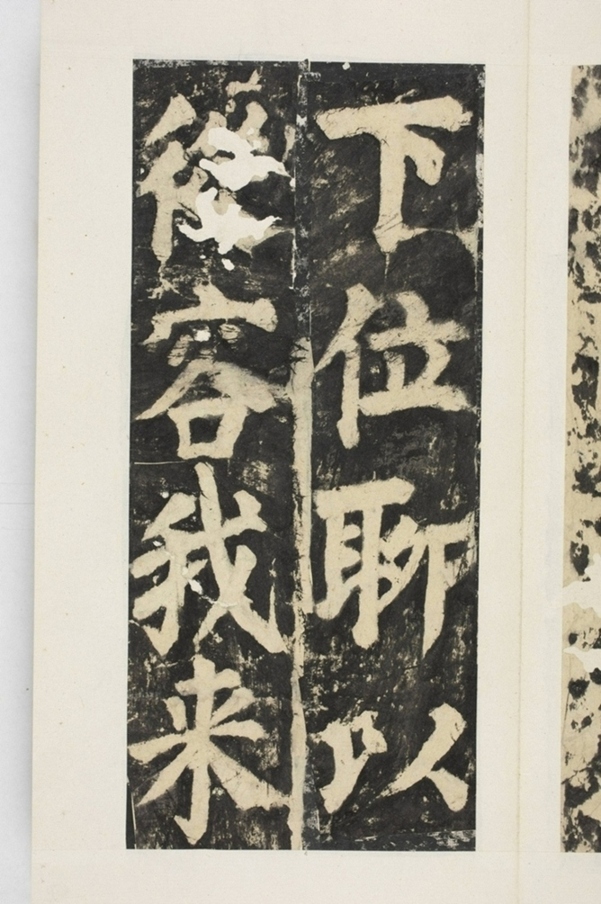 下位聊以
從容我来